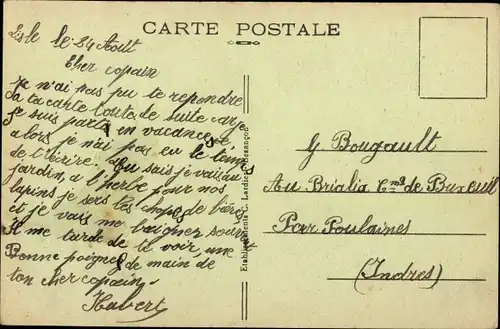 CARTE POSTALE
Isle le 24 Août
Cher copain
Je n'ai pas pu te repondre
a ta carte toute de suite car
je suis partit en vacances
alors je n'ai pas eu le temps
de t'écrire. tu sais je vais au
jardin, a l'herbe pour nos
lapins je sers les chopes de bière
et je vais me baigner souvent
Il me tarde de te voir, une
Bonne poignée de main, de
ton cher copain
Hubert
Etablissements C. Lardier, Besançon
G Bougault
Au Brialia Cne de Buxeuil
Par Poulaines
(Indres)